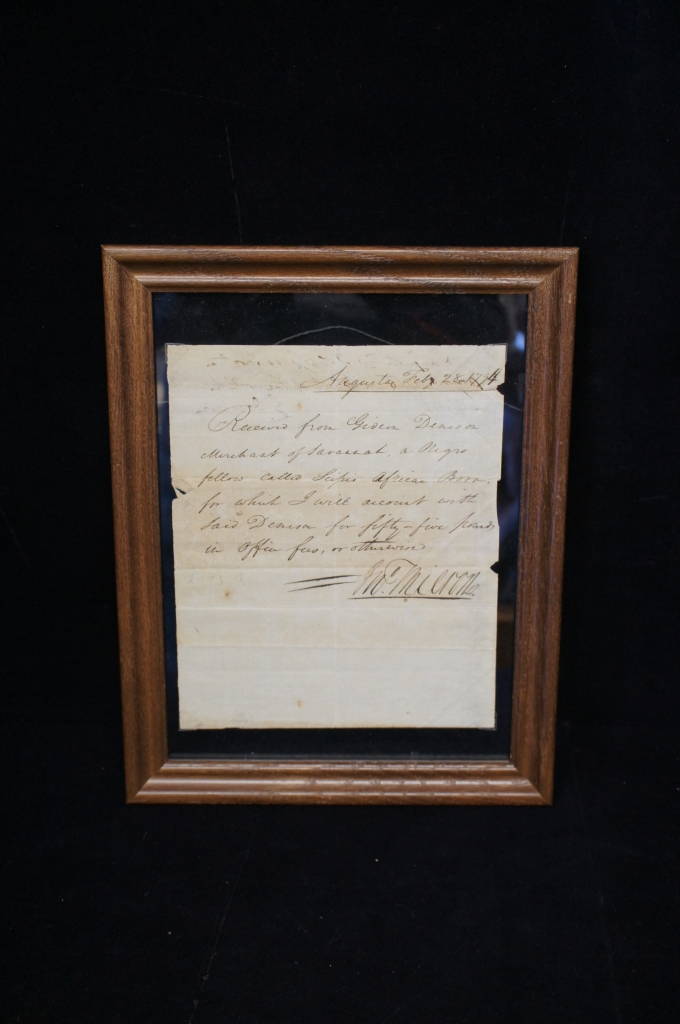 Augusta, Feby 28 1794
Received from Gideon Denison
Merchant of Savannah, a Negro
fellow called Scipio African Born,
for which I will account with
said Denison for fifty-five pounds
in office fees, or otherwise
Jno. Milton